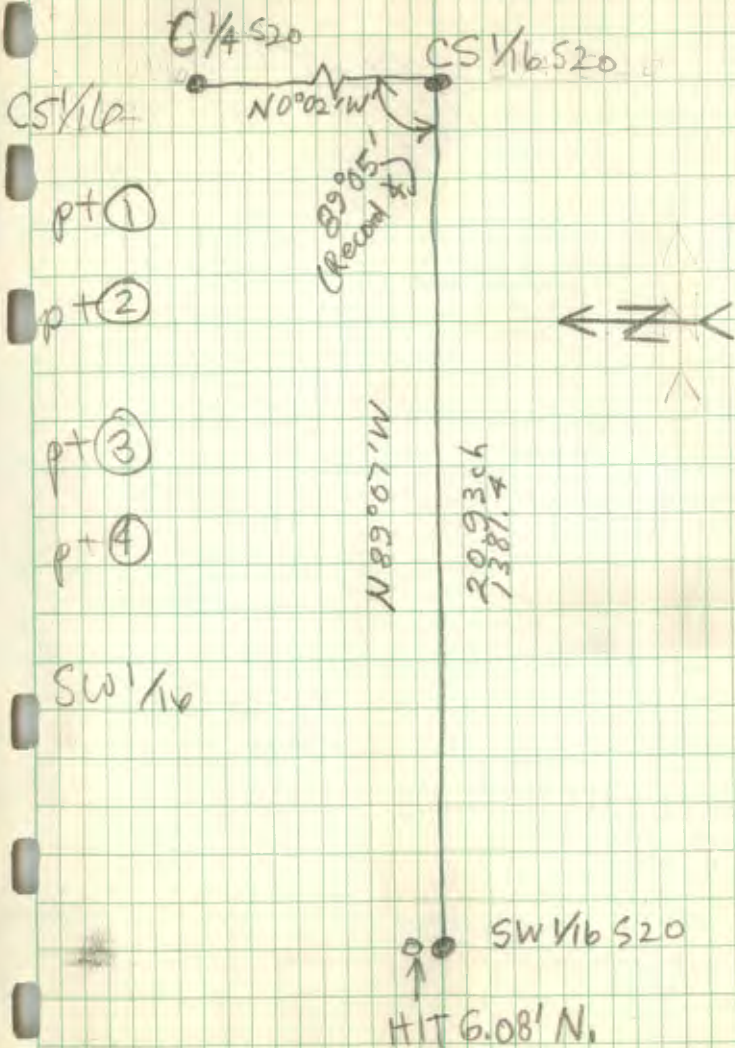 C 1/4 S20
CS 1/16 S20
N0°02'W
CS 1/16
89°05'
(Record ∡)
pt ①
pt ②
N
pt ③
pt ④
N89°07'W
20.93ch
1381.4
SW 1/16
SW 1/16 S20
HIT 6.08' N.